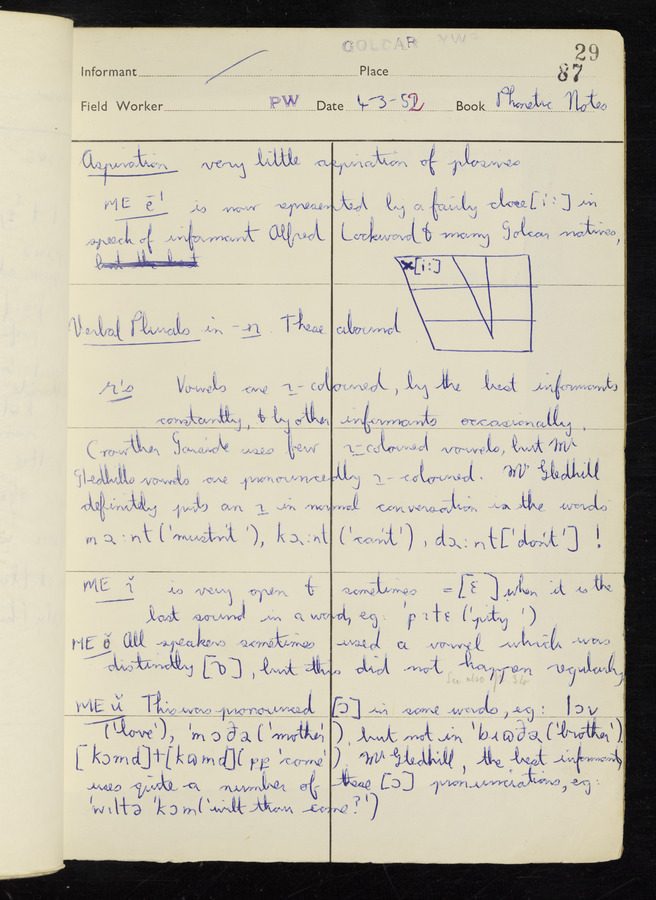 GOLCAR YW
29
Informant Place 87
Field Worker PW Date 4-3-52 Book Phonetic Notes
Aspiration very little aspiration of plosives
ME ē¹ is now represented by a fairly close [i:] in
speech of informant Alfred Lockwood & many Golcar natives,
but the best
×[i:]
Verbal Plurals in -n. These abound
r's Vowels are ɹ-coloured, by the best informants
constantly, & by other informants occasionally.
Crowther Garside uses few ɹ-coloured vowels, but Mr
Gledhills vowels are pronouncedly ɹ-coloured. Mr Gledhill
definitely puts an ɹ in normal conversation in the words
('mustn't'), ('can't'), ['don't'] !
ME ĭ is very open & sometimes = [ɛ] when it is the
last sound in a word, eg: 'pɪtɛ ('pity')
ME ŏ All speakers sometimes used a vowel which was
distinctly [ɒ], but this did not happen regularly,
See also p. 34
ME ŭ This was pronounced [ɔ] in some words, eg: lɔv
('love'), 'mɔðə ('mother'), but not in ('brother')
[kɔmd]+[kɷmd] (pp 'come'). Mr Gledhill, the best informant,
uses quite a number of these [ɔ] pronunciations, eg:
'wɪltə 'kɔm ('wilt thou come?')